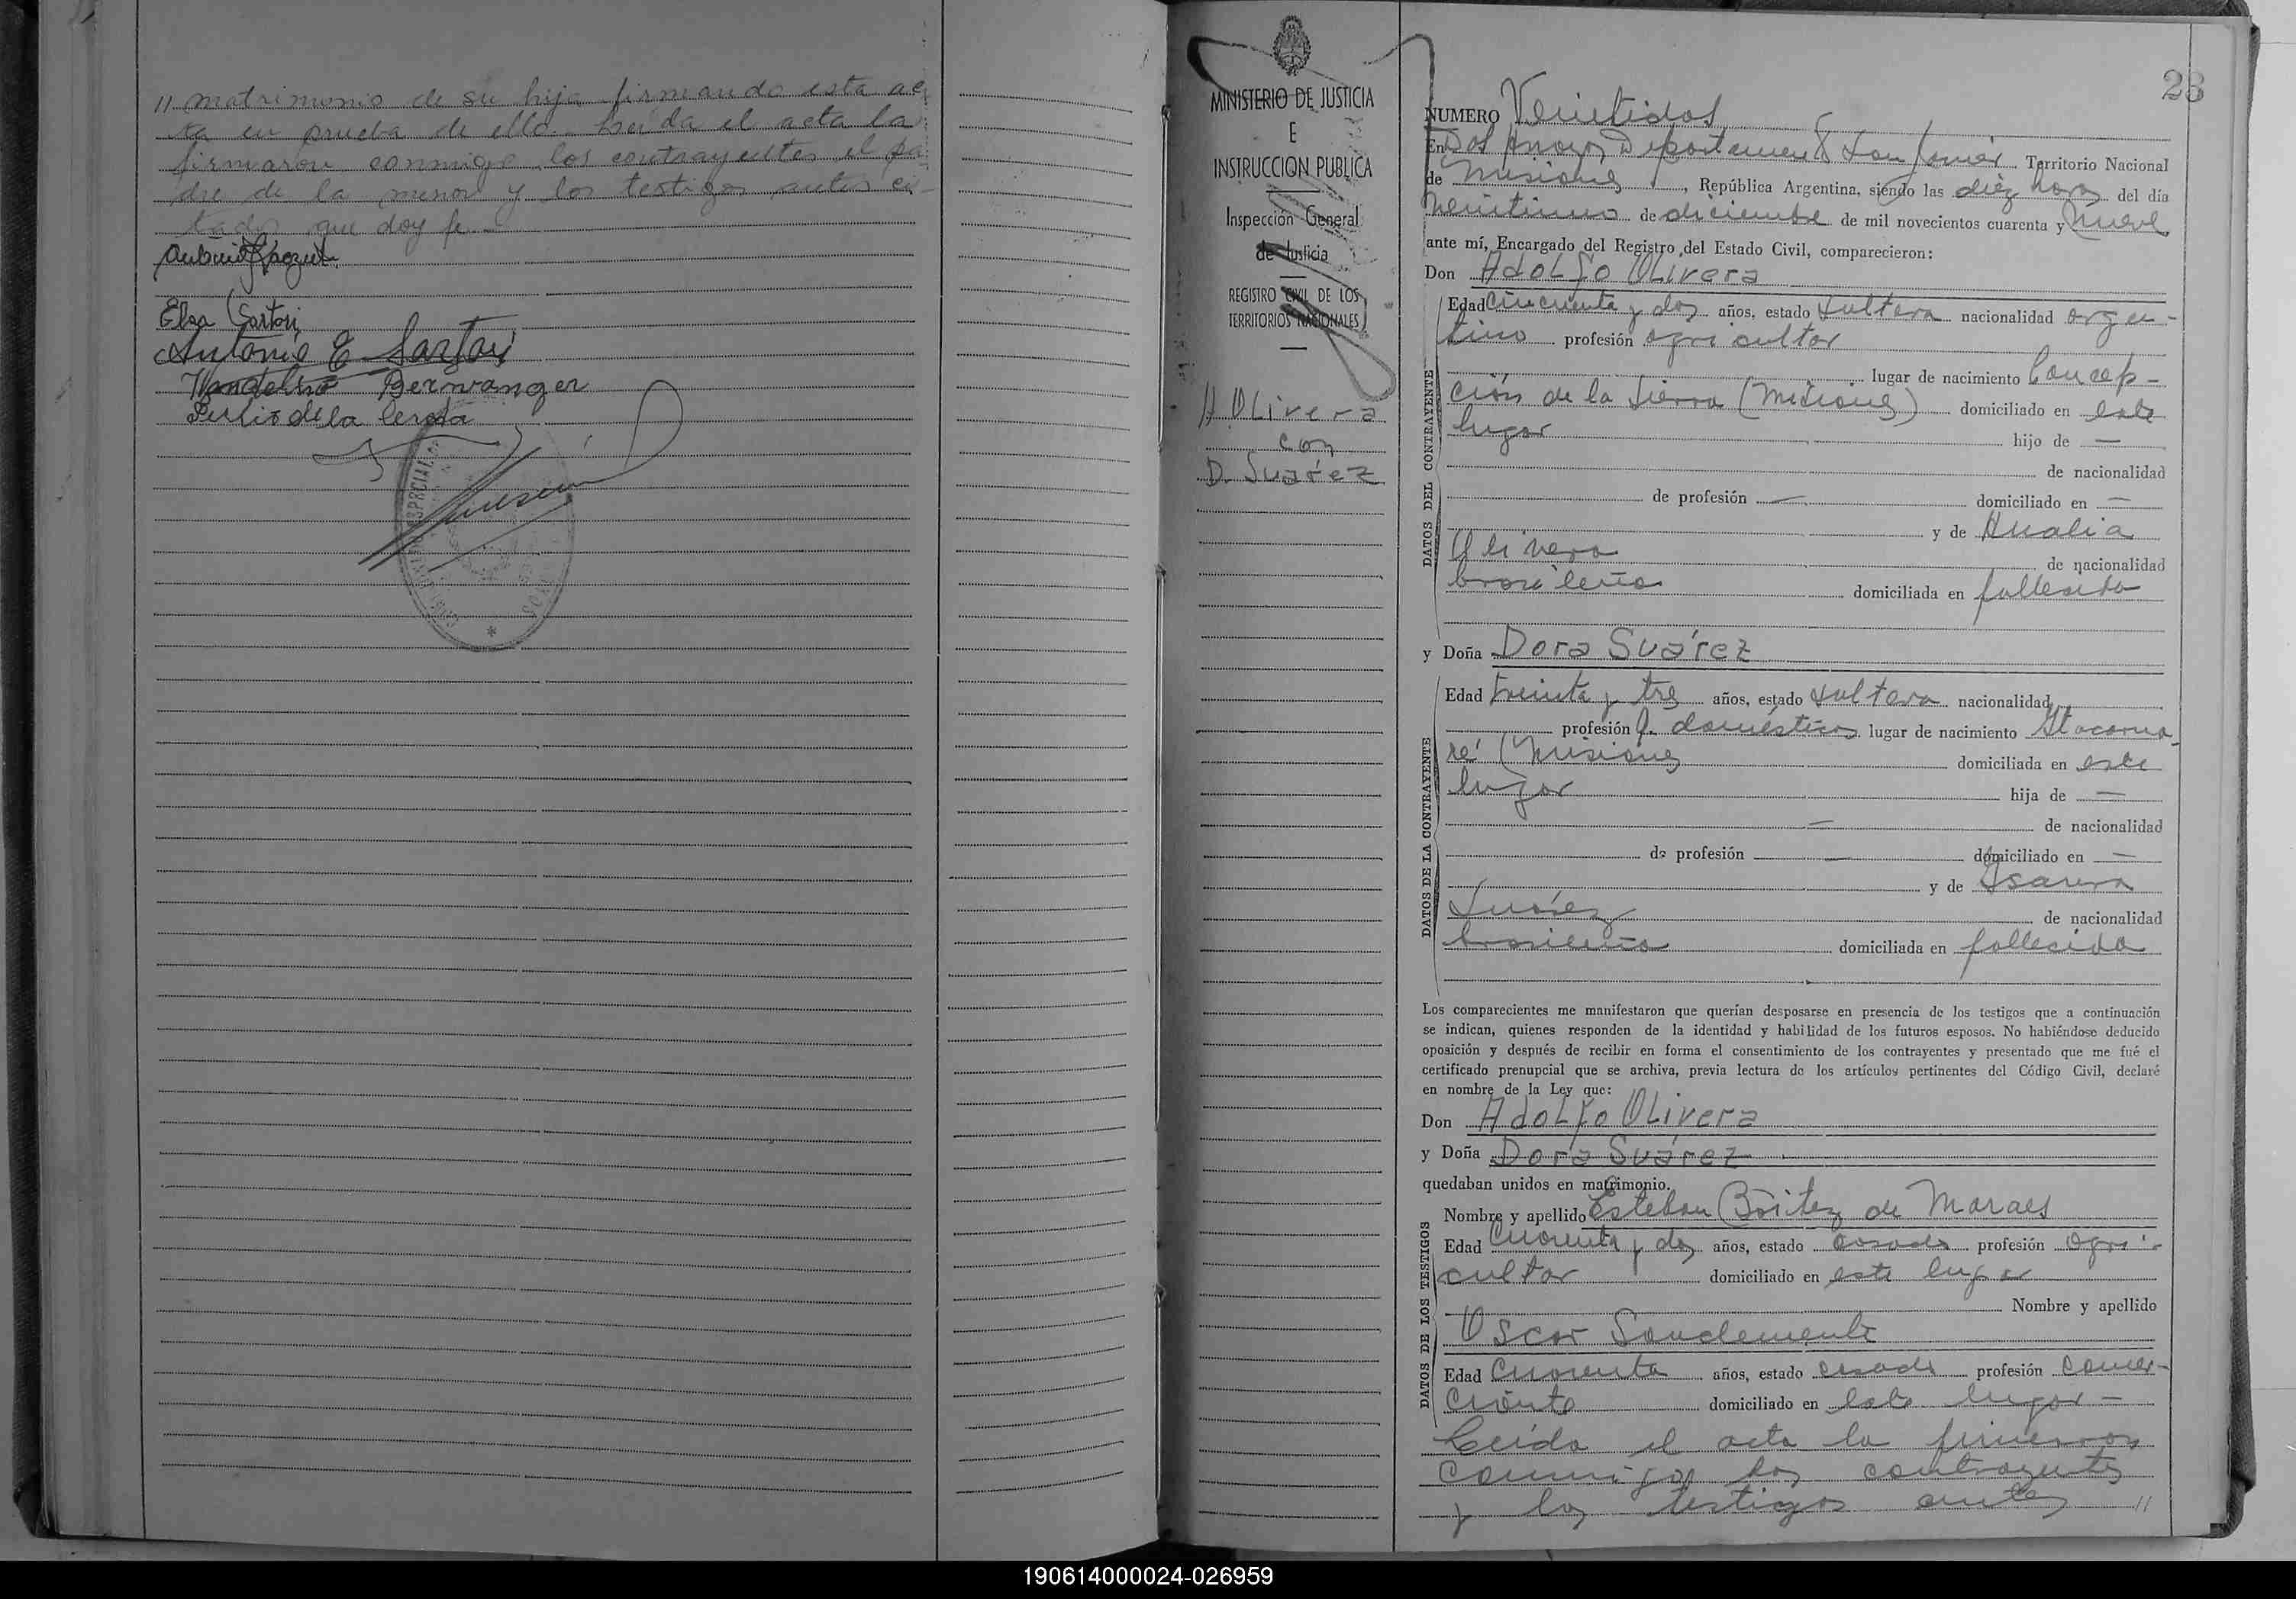 // matrimonio de su hija firmando esta ac
ta en prueba de ello. Leida el acta la
firmaron conmigo los contrayentes el pa
dre de la menor y los testigos antes ci-
tados que doy fe.-
Elsa Sartori
Antonio E Sartori
Wandelino Berwanger
de la Cerda
MINISTERIO DE JUSTICIA
E
INSTRUCCION PUBLICA
Inspección General
de Justicia
REGISTRO CIVIL DE LOS
TERRITORIOS NACIONALES
A Olivera
con
D. Suárez
23
NUMERO Veintidos
En Dos Arroyos Departamento San Javier Territorio Nacional
de Misiones, República Argentina, siendo las diez horas del día
veintiuno de diciembre de mil novecientos cuarenta y nueve
ante mí, Encargado del Registro del Estado Civil, comparecieron:
Don Adolfo Olivera
Edad cincuenta y dos años, estado soltero nacionalidad argen-
tino profesión agricultor
lugar de nacimiento Concep-
ción de la Sierra (Misiones) domiciliado en este
lugar hijo de —
de nacionalidad
de profesión — domiciliado en —
y de Analia
Olivera de nacionalidad
brasileña domiciliada en fallecida
y Doña Dora Suárez
Edad treinta y tres años, estado soltera nacionalidad
profesión q. domésticos lugar de nacimiento Itacarua-
ré (Misiones domiciliada en este
lugar hija de —
— de nacionalidad
de profesión — domiciliado en —
y de
Suárez de nacionalidad
brasileña domiciliada en fallecida
DATOS DEL CONTRAYENTE
DATOS DE LA CONTRAYENTE
Los comparecientes me manifestaron que querían desposarse en presencia de los testigos que a continuación
se indican, quienes responden de la identidad y habilidad de los futuros esposos. No habiéndose deducido
oposición y después de recibir en forma el consentimiento de los contrayentes y presentado que me fué el
certificado prenupcial que se archiva, previa lectura de los artículos pertinentes del Código Civil, declaré
en nombre de la Ley que:
Don Adolfo Olivera
y Doña Dora Suárez
quedaban unidos en matrimonio.
DATOS DE LOS TESTIGOS
Nombre y apellido Esteban Boitez de Moraes
Edad cuarenta y dos años, estado casado profesión agri-
cultor domiciliado en este lugar
Nombre y apellido
Oscar Sanclemente
Edad cuarenta años, estado casado profesión comer-
ciante domiciliado en este lugar -
Leída el acta la firmaron
conmigo los contrayentes
y los testigos antes //
190614000024-026959